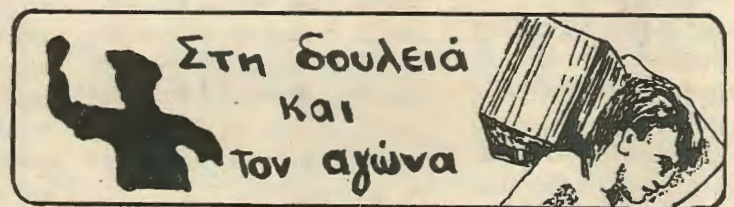 Στη δουλειά
και
Τον αγώνα